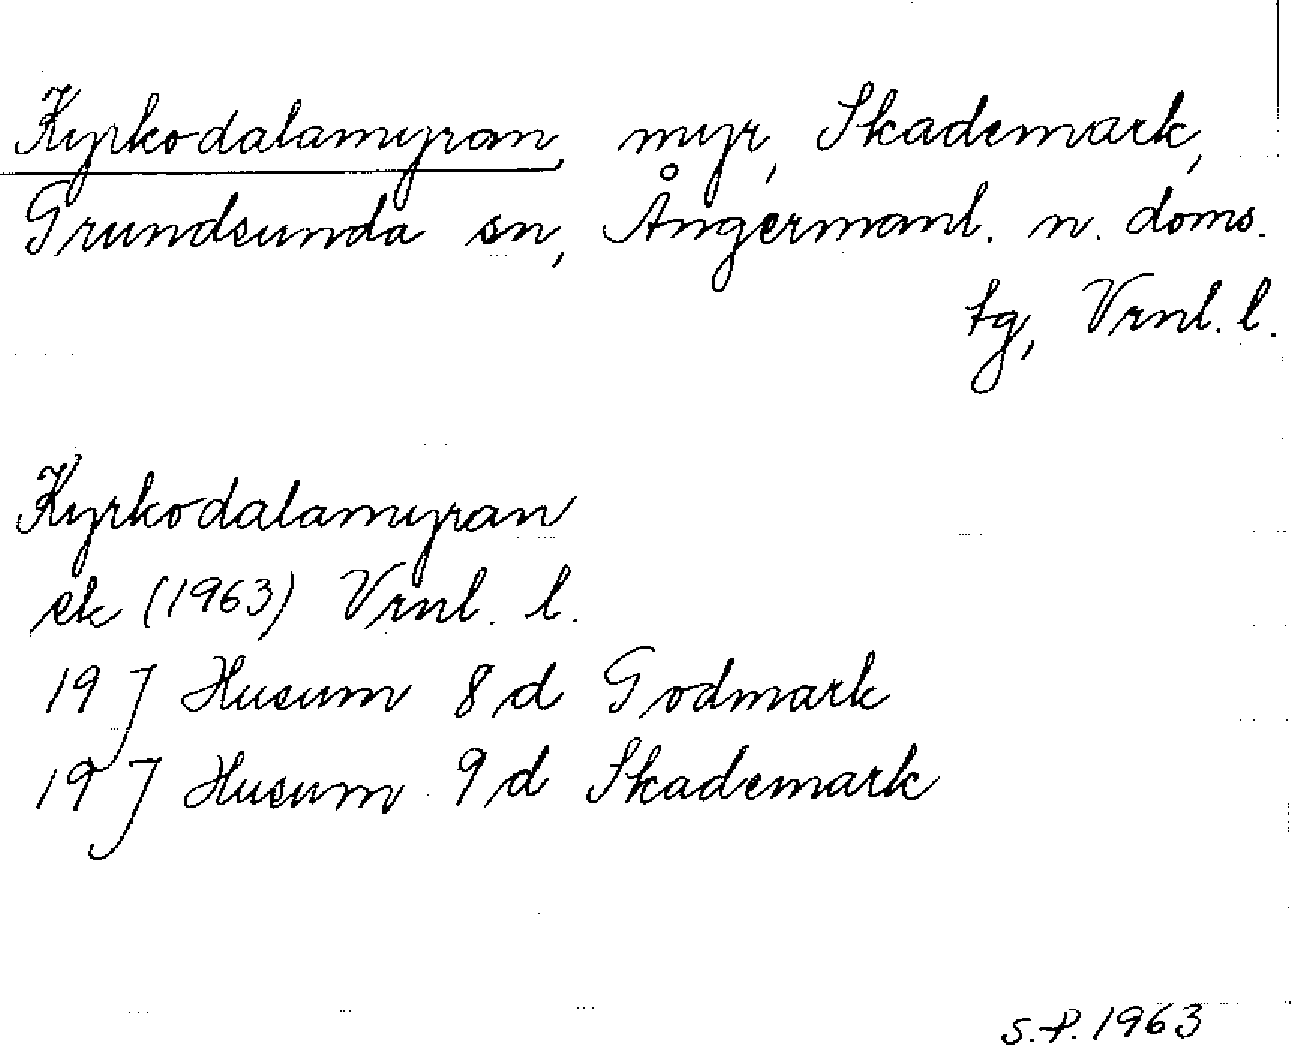 Kyrkodalamyran, myr, Skademark,
Grundsunda sn, Ångermanl. n. doms.
tg, Vrnl. l.
Kyrkodalamyran
ek (1963) Vrnl. l.
19 J Husum 8 d Godmark
19 J Husum 9 d Skademark
S.P. 1963